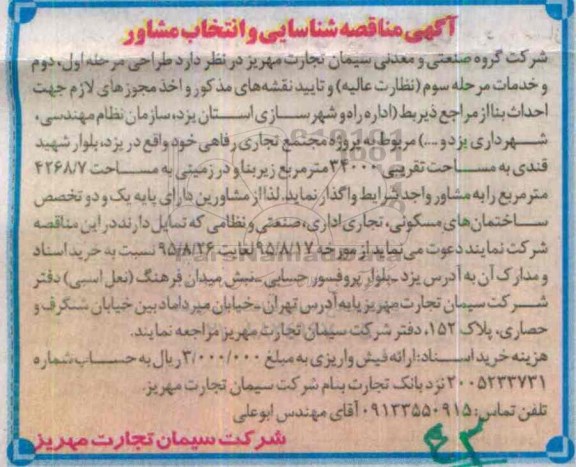 آگهی مناقصه شناسایی و انتخاب مشاور
شرکت گروه صنعتی و معدنی سیمان تجارت مهریز در نظر دارد طراحی مرحله اول، دوم
و خدمات مرحله سوم (نظارت عالیه) و تایید نقشه‌های مذکور و اخذ مجوزهای لازم جهت
احداث بنا از مراجع ذیربط (اداره راه و شهرسازی استان یزد، سازمان نظام مهندسی،
شهرداری یزد و ...) مربوط به پروژه مجتمع تجاری رفاهی خود واقع در یزد، بلوار شهید
قندی به مساحت تقریبی ۳۴۰۰۰ متر مربع زیربنا و در زمینی به مساحت ۴۲۶۸/۷
متر مربع را به مشاور واجد شرایط واگذار نماید. لذا از مشاورین دارای پایه یک و دو تخصص
ساختمان‌های مسکونی، تجاری اداری، صنعتی و نظامی که تمایل دارند در این مناقصه
شرکت نمایند دعوت می نماید از مورخه ۹۵/۸/۱۷ لغایت ۹۵/۸/۲۶ نسبت به خرید اسناد
و مدارک آن به آدرس یزد - بلوار پروفسور حسابی - نبش میدان فرهنگ (نعل اسبی) دفتر
شرکت سیمان تجارت مهریز یا به آدرس تهران - خیابان میرداماد بین خیابان شنگرف و
حصاری، پلاک ۱۵۲، دفتر شرکت سیمان تجارت مهریز مراجعه نمایند.
هزینه خرید اسناد: ارائه فیش واریزی به مبلغ ۳/۰۰۰/۰۰۰ ریال به حساب شماره
۲۰۰۵۲۳۳۷۳۱ نزد بانک تجارت بنام شرکت سیمان تجارت مهریز.
تلفن تماس: ۰۹۱۳۳۵۵۰۹۱۵ آقای مهندس ابوعلی
شرکت سیمان تجارت مهریز
۴۳